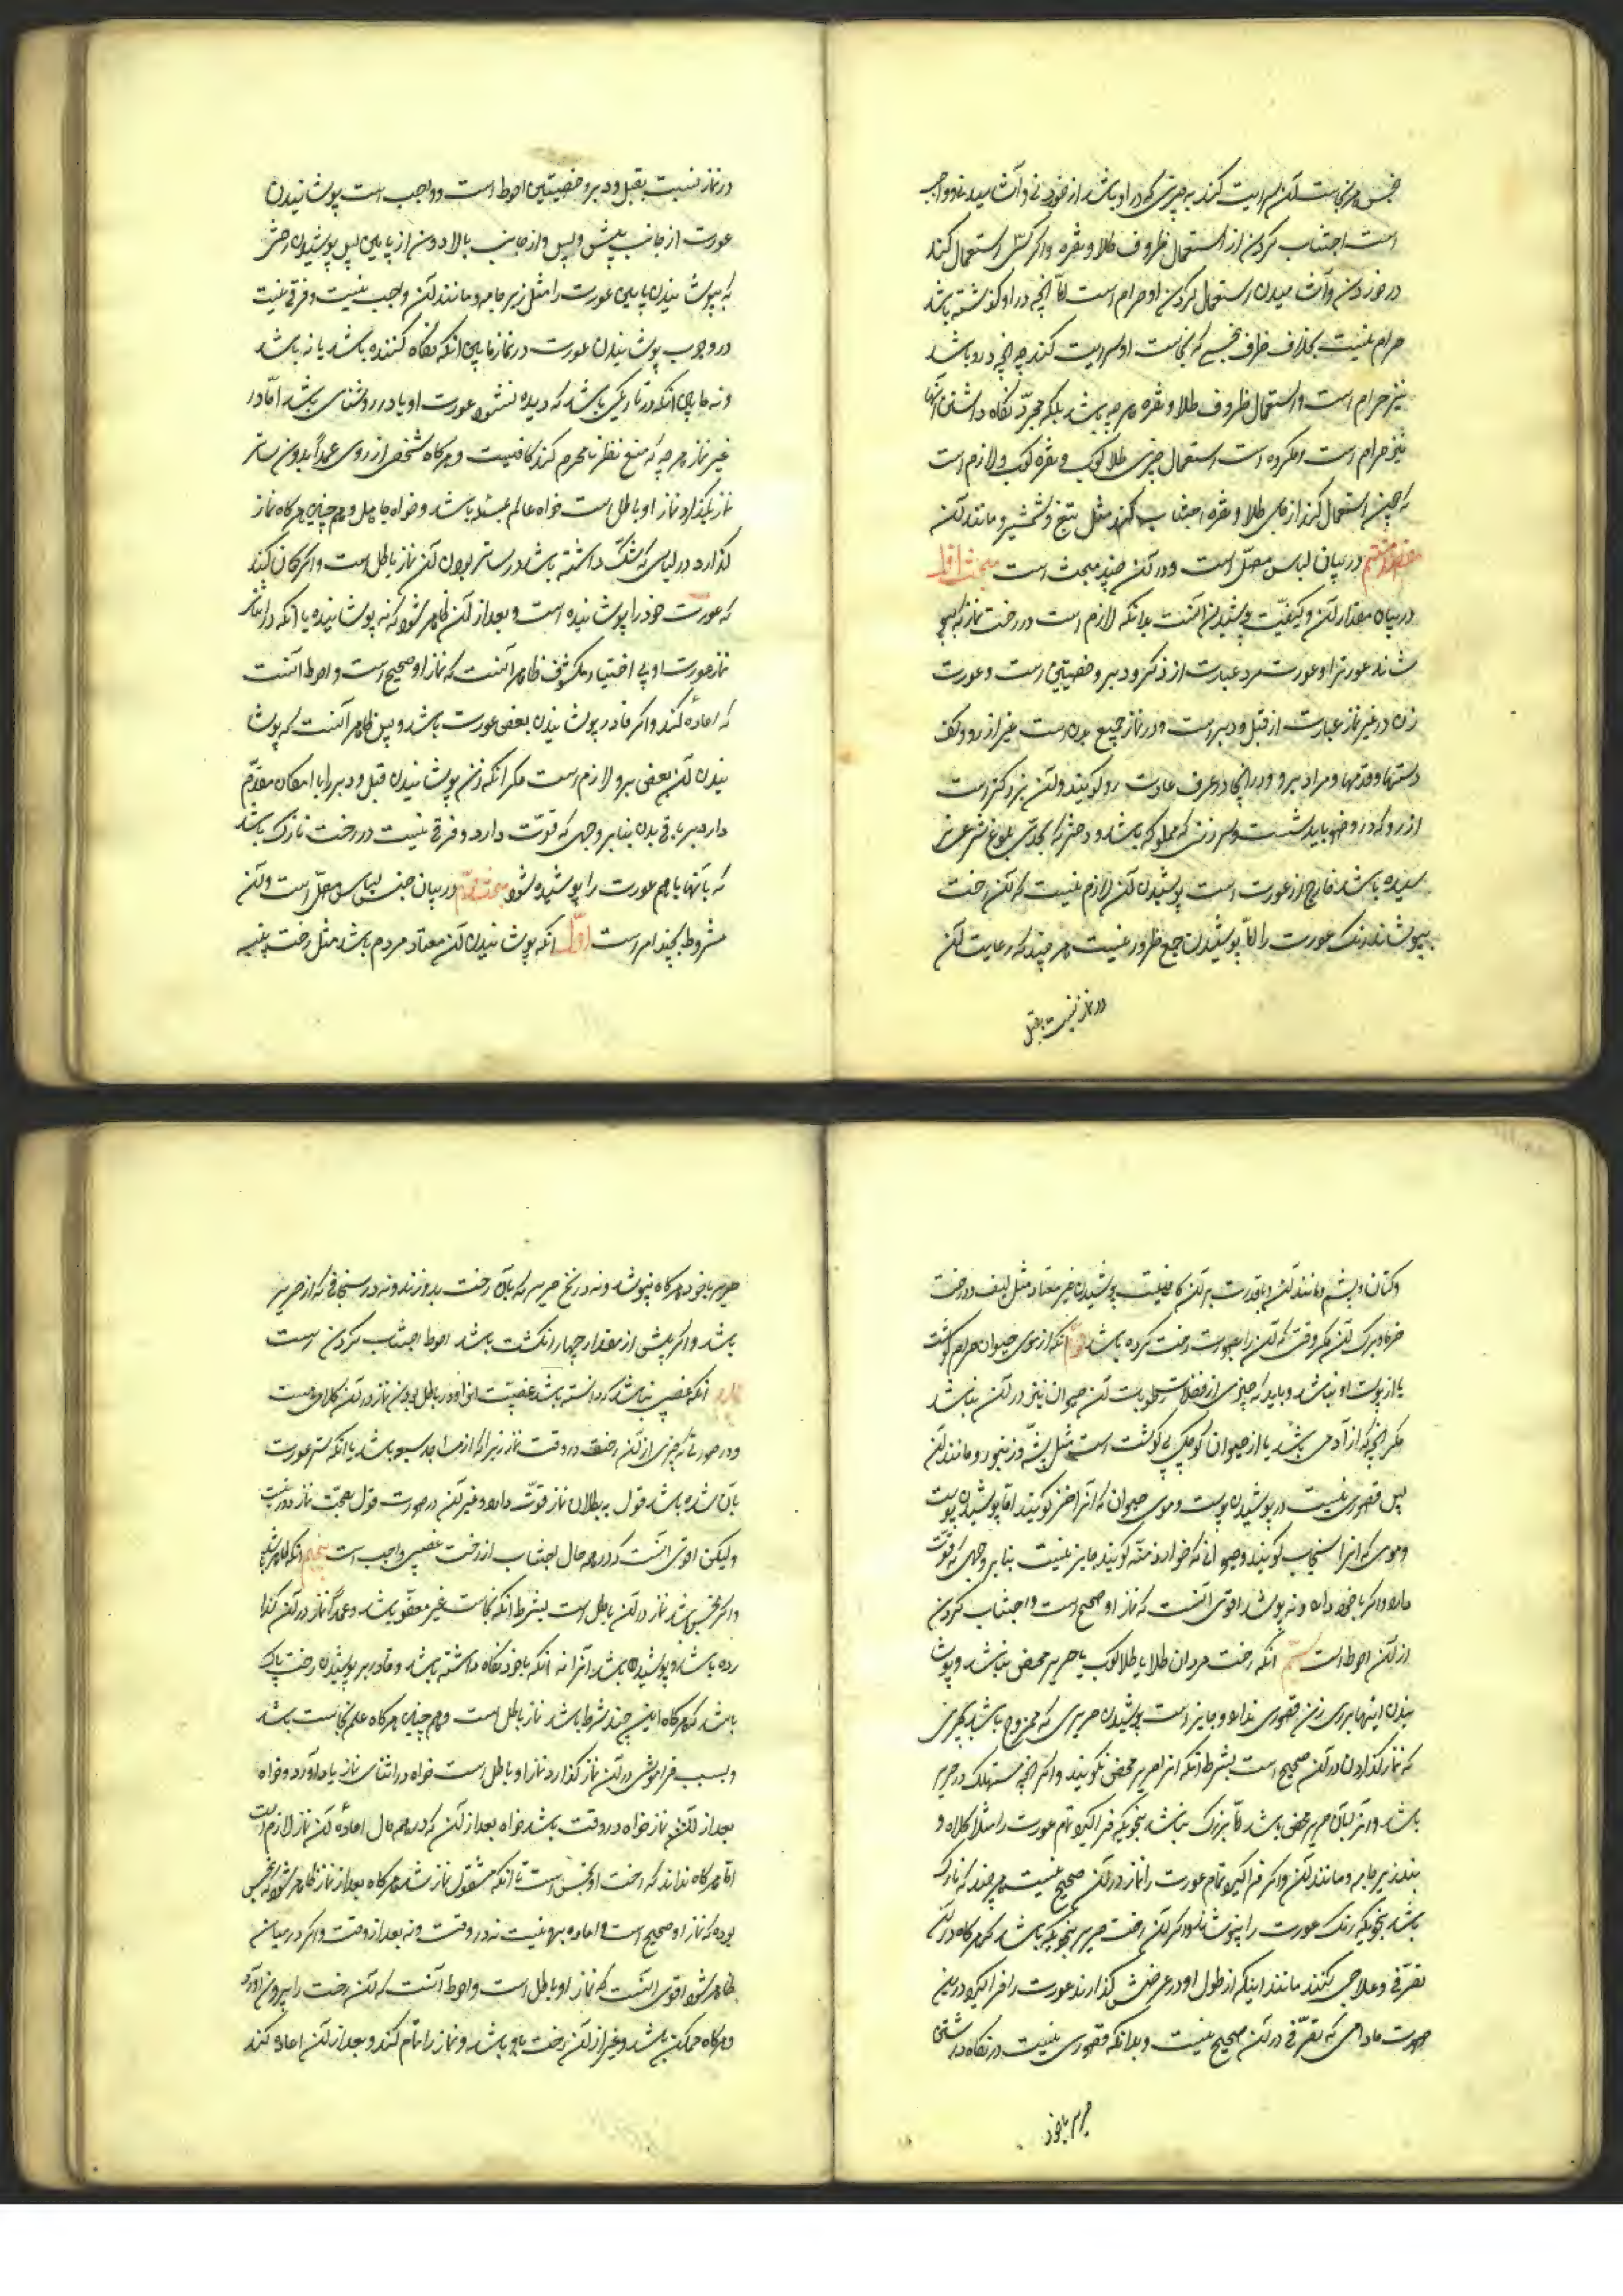 است اجتناب کردن از استعمال ظروف طلا و نقره و اگر کسی استعمال کند
در خوردن و آشامیدن استعمال کردن او حرام است اما آنچه در او گذشته باشد
حرام نیست بخلاف ظرف نجس که نجاست او سرایت کند چه آنچه در او باشد
نیز حرام است و استعمال ظروف طلا و نقره هر چه باشد بلکه مجرد نگاه داشتن آنها
نیز حرام است و مکروه است استعمال چیزی طلا کوب و نقره کوب و لازم است
که چون استعمال کند از جای طلا و نقره اجتناب کند مثل تیغ و شمشیر و مانند آن
در بیان لباس مصلی است و در آن چند مبحث است مبحث اول
در بیان مقدار آن و کیفیت پوشیدن آنست بدانکه لازم است در رخت نماز که بپو
شاند عورتر او عورت مرد عبارت از ذکر و دبر و خصیتین است و عورت
زن در غیر نماز عبارت از قبل و دبر است و در نماز جمیع بدن است غیر از رو و کف
دستها و قدمها و مراد به رو در اینجا در عرف عادت رو گویند و آن بزرگتر است
از رو که در وضو باید شست و سر زن که مملوکه باشد و دختر که بحد بلوغ شرعی نر
سیده باشد خارج از عورت است پوشیدن آن لازم نیست که آن رخت
بپوشاند رنک عورت را اما پوشیدن حجم ضرور نیست هر چند که رعایت آن
در نماز نسبت بقبل
در نماز نسبت بقبل و دبر و خصیتین احوط است و واجب است پوشانیدن
عورت از جانب پیش و پس و از جانب بالا و نه از پایین پس پوشیدن رختی
که بپوشانیدن پایین عورت را مثل زیر جامه و مانند آن واجب نیست و فرقی نیست
در وجوب پوشانیدن عورت در نماز مابین آنکه نگاه کننده باشد یا نه باشد
و نه مابین آنکه در تاریکی باشد که دیده نشود عورت او یا در روشنای باشد اما در
غیر نماز هر چه که منع نظر نامحرم کند کافیست و هر گاه شخص از روی عمداً بدون ساتر
نماز بگذارد نماز او باطل است خواه عالم بمسئله باشد و خواه جاهل و هم چنین هر گاه نماز
گذارد در لباسی که شک داشته باشد در ساتر بودن آن نماز باطل است و اگر گمان کند
که عورت خود را پوشانیده است و بعد از آن ظاهر شود که نه پوشانیده یا آنکه در اثنای
نماز عورت او بی اختیار مکشوف ظاهر آنست که نماز او صحیح است و احوط آنست
که اعاده کند و اگر قادر بپوشانیدن بعضی عورت باشد و بس ظاهر آنست که پوشا
نیدن آن بعض برو لازم است مگر آنکه زن پوشانیدن قبل و دبر را با امکان مقدم
دارد بر باقی بدن بنابر وجهی که قوت دارد و فرقی نیست در رخت نازک باشد
که با آنها با هم عورت را پوشیده شود مبحث دوم در بیان جنس لباس مصلی است و آن
مشروط بچند امر است اول آنکه پوشانیدن آن معتاد مردم باشد مثل رخت پنبه
و کتان و پشم و مانند آن و با قدرت بر آن کافی نیست پوشیدن غیر معتاد مثل لیف درخت
خرما و برک آن مگر وقتی که آن را بصورت رخت کرده باشد دوم آنکه از موی حیوان حرام گوشت
یا از پوست او نباشد و باید که چیزی از فضلات و رطوبات آن حیوان نیز در آن نباشد
مگر آنچه که از آدمی باشد یا از حیوان کوچک بی گوشت است مثل پشه و زنبور و مانند آن
پس قصوری نیست در پوشیدن پوست و موی حیوان که آنرا خز گویند اما پوشیدن پوست
و موی که آنرا سنجاب گویند جایز نیست بنا بر وجهی که قوت
دارد و اگر با خود دارد و نه پوشد اقوی آنست که نماز او صحیح است و اجتناب کردن
از آن احوط است سیم آنکه رخت مردان طلا یا طلا کوب یا حریر محض نباشد و پوشا
نیدن اینها برای زن قصوری ندارد و جایز است پوشیدن حریری که ممزوج باشد بچیزی
که نماز گذاردن در آن صحیح است بشرط آنکه آنرا حریر محض نگویند و اگر آنچه مستهلک در حریر
باشد و اگر لباس حریر محض باشد اما بزرگ نباشد بنحویکه فرا گیرد تمام عورت را مثلا کلاه و
بند زیر جامه و مانند آن و اگر فرا گیرد تمام عورت را نماز در آن صحیح نیست هر چند که نازک
باشد بنحویکه رنک عورت را نپوشاند و اگر آن رخت حریر بنحوی باشد که هر گاه در آن
تصرفی و علاجی بکنند مانند اینکه از طول او در عرضش گذارند عورت را فرا گیرد در این
صورت مادامی که تصرفی در آن صحیح نیست و بدانکه قصوری نیست در نگاه داشتن
حریر با خود
حریر با خود هر گاه نپوشد و نه در نخ حریر که بآن رخت بدوزند و نه در سنجافی که از حریر
باشد و اگر بیش از مقدار چهار انگشت باشد احوط اجتناب کردن است
آنکه غصبی نباشد که دانسته باشد غصبیت او را و در باطل بودن نماز در آن کلامی است
و در صورتی که چیزی از آن رخت در وقت نماز زیر اندام از مساجد سبعه باشد یا آنکه ستر عورت
بآن شده باشد قول به بطلان نماز قوت دارد و غیر آن در صورت قول بصحت نماز دور نیست
ولیکن اقوی آنست که در هر حال اجتناب از رخت غصبی واجب است پنجم آنکه طاهر باشد
و اگر نجس باشد نماز در آن باطل است بشرط آنکه نجاست غیر معفو باشد و عمداً نماز در آن گذا
رده باشد و پوشیده باشد آنرا نه آنکه با خود نگاه داشته باشد و قادر بر پوشیدن رخت پاک
باشد که هر گاه این چند شرط باشد نماز باطل است و هم چنین هر گاه علم نجاست باشد
و بسبب فراموشی در آن نماز گذارد نماز او باطل است خواه در اثنای نماز بیاد آورد و خواه
بعد از آن نماز خواه در وقت باشد خواه بعد از آن که در هر حال اعاده آن نماز لازم است
اما هر گاه نداند که رخت او نجس است تا آنکه مشغول نماز شد هر گاه بعد از نماز ظاهر شود که نجس
بوده که نماز او صحیح است و اعاده بر او نیست نه در وقت و نه بعد از وقت و اگر در میان
ظاهر شود اقوی آنست که نماز او باطل است و احوط آنست که آن رخت را بیرون آورد
و هر گاه ممکن باشد و غیر از آن رخت با او باشد و نماز را تمام کند و بعد از آن اعاده کند